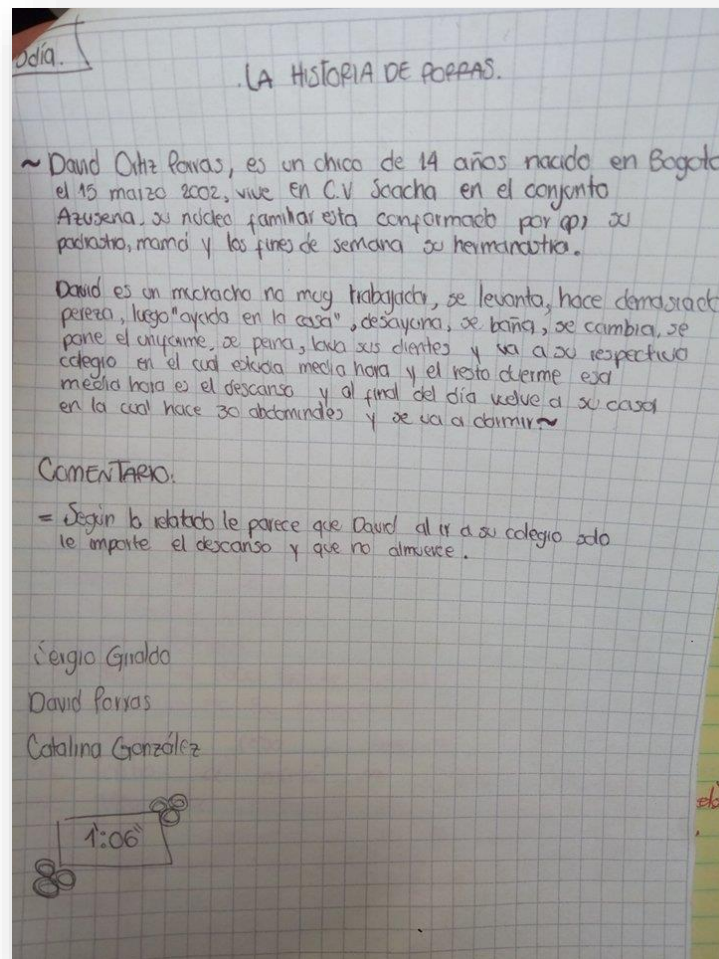 odía.
LA HISTORIA DE PORRAS.
~ David Ortiz Porras, es un chico de 14 años nacido en Bogotá
el 15 marzo 2002, vive en C.V Soacha en el conjunto
Azusena, su nucleo familiar esta conformado por su
padrastro, mamá y los fines de semana su hermanastra.
David es un muchacho no muy trabajador, se levanta, hace demasiad
pereza, luego "ayuda en la casa", desayuna, se baña, se cambia, se
pone el uniforme, se peina, lava sus dientes y va a su respectivo
colegio en el cual estudia media hora y el resto duerme esa
media hora es el descanso y al final del día vuelve a su casa
en la cual hace 30 abdominales y se va a dormir ~
COMENTARIO:
= Según lo relatado le parece que David al ir a su colegio solo
le importe el descanso y que no almuerce.
Sergio Giraldo
David Porras
Catalina González
1':06''